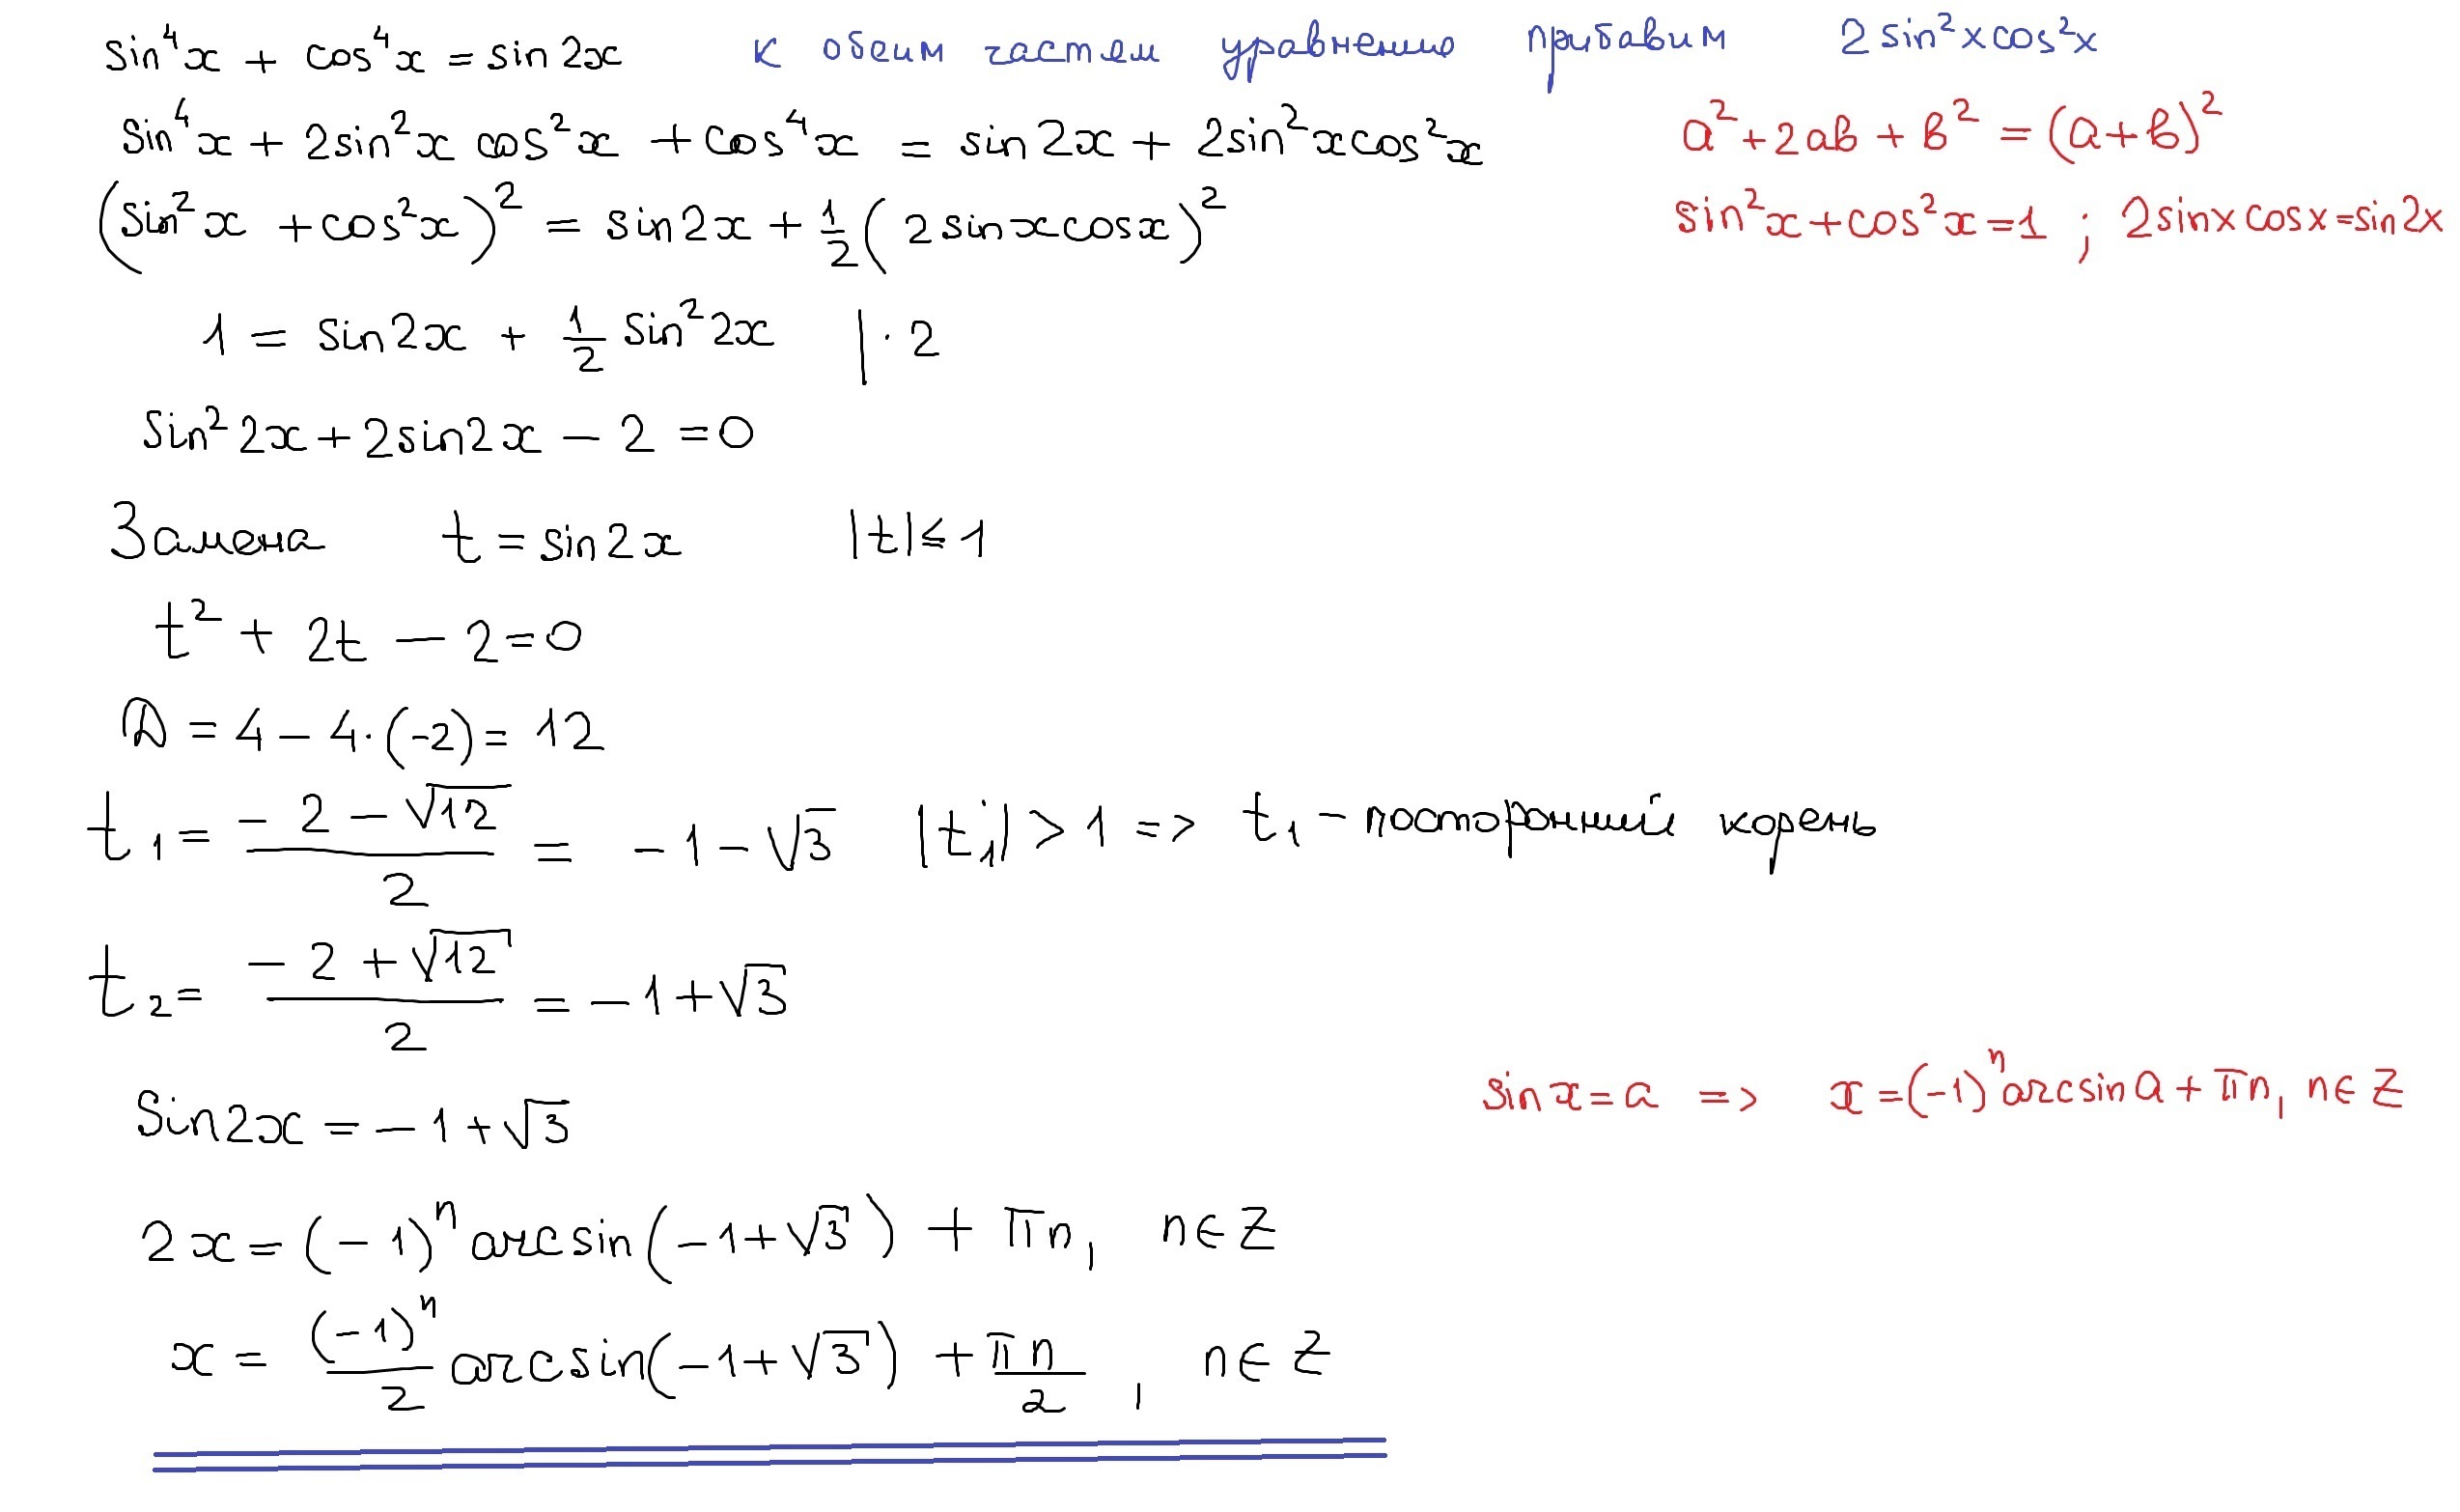 sin⁴x + cos⁴x = sin2x к обеим частям уравнения прибавим 2sin²xcos²x
sin⁴x + 2sin²x cos²x + cos⁴x = sin2x + 2sin²xcos²x a²+2ab+b² = (a+b)²
(sin²x + cos²x)² = sin2x + 1/2(2sinxcosx)² sin²x+cos²x=1 ; 2sinxcosx=sin2x
1 = sin2x + 1/2 sin²2x |·2
sin²2x+2sin2x − 2 =0
Замена t = sin2x |t|≤1
t² + 2t − 2=0
D = 4 − 4·(-2)= 12
t₁ = (−2 − √12)/2 = −1−√3 |t₁|>1 => t₁ − посторонний корень
t₂ = (−2 + √12)/2 = −1+√3
Sin2x = −1+√3 sinx=a => x=(-1)ⁿarcsina+πn, n∈Z
2x = (−1)ⁿ arcsin(−1+√3) + πn, n∈Z
x = (−1)ⁿ/2 arcsin(−1+√3) + πn/2, n∈Z